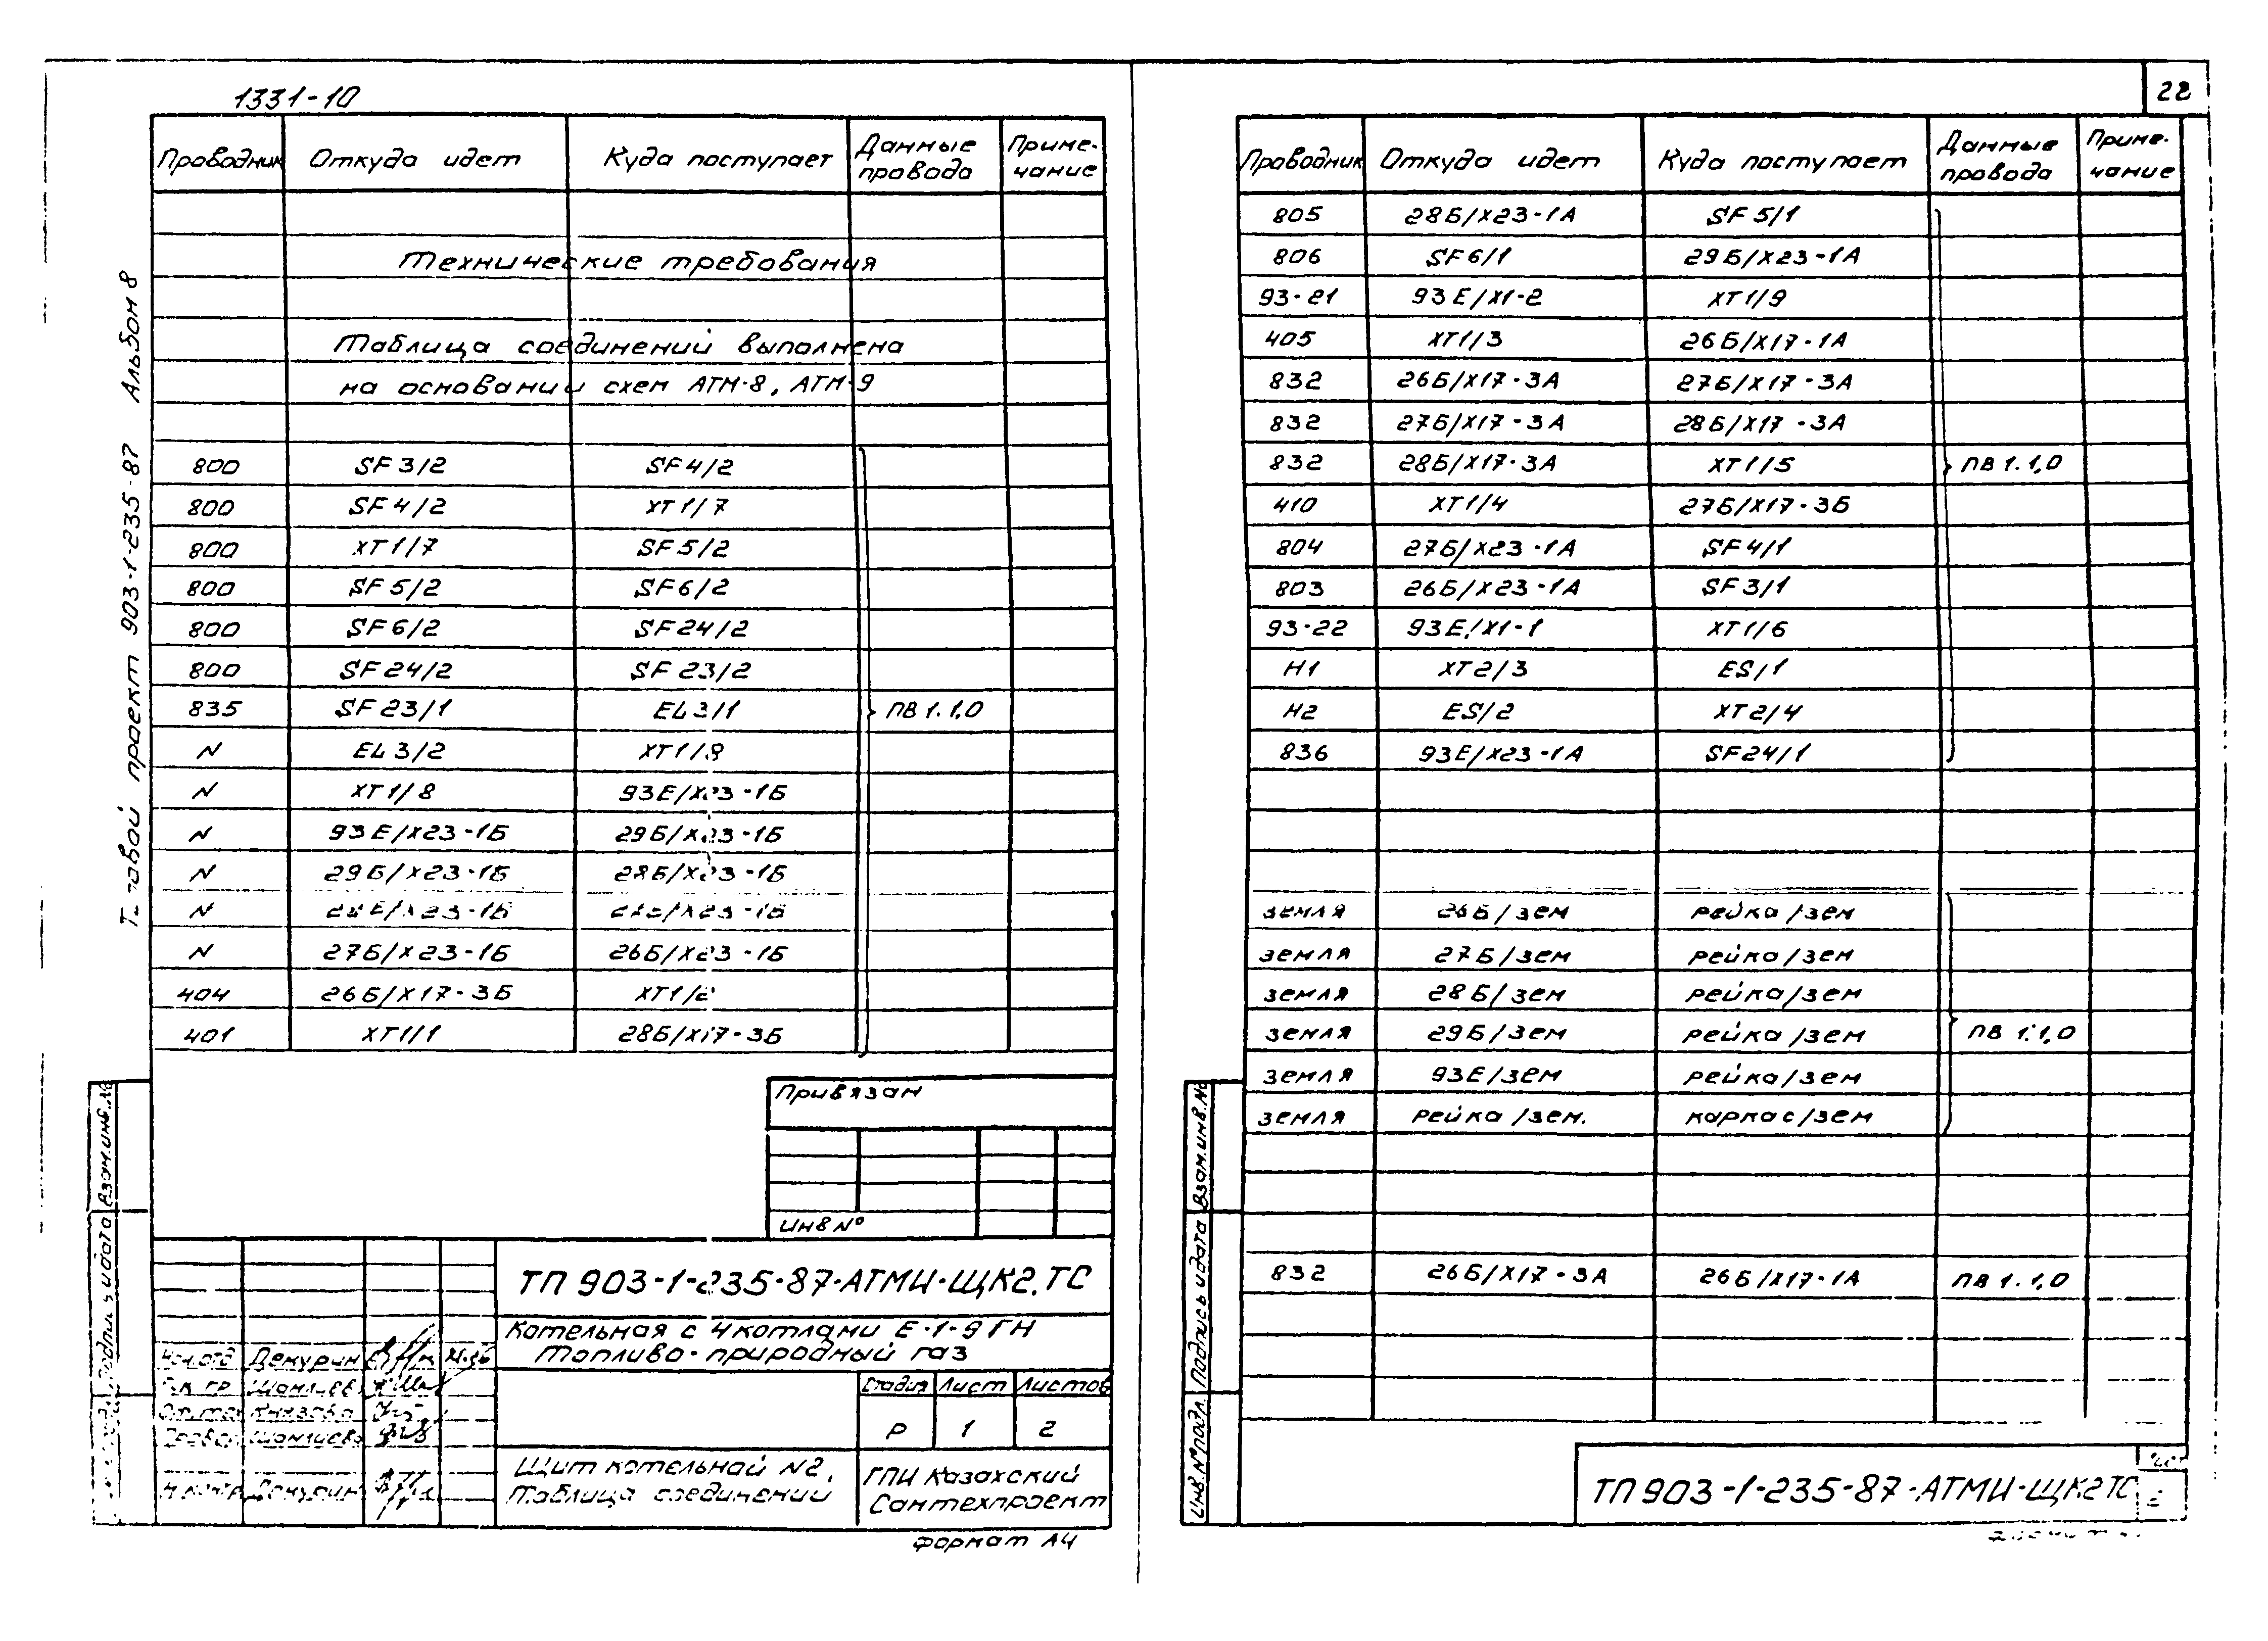 1331-10
22
Альбом 8
проект 903-1-235-87
Проводник Откуда идет Куда поступает Данные провода Приме-чание
Технические требования
Таблица соединений выполнена
на основании схем АТМ-8, АТМ-9
800 SF3/2 SF4/2
800 SF4/2 XT1/7
800 XT1/7 SF5/2
800 SF5/2 SF6/2
800 SF6/2 SF24/2
800 SF24/2 SF23/2
835 SF23/1 EL3/1 ПВ 1.1,0
N EL3/2 XT1/8
N XT1/8 93Е/Х23-1Б
N 93Е/Х23-1Б 29Б/Х23-1Б
N 29Б/Х23-1Б 28Б/Х23-1Б
N 28Б/Х23-1Б 27Б/Х23-1Б
N 27Б/Х23-1Б 26Б/Х23-1Б
404 26Б/Х17-3Б XT1/2
401 XT1/1 28Б/Х17-3Б
Привязан
Инв №
ТП 903-1-235-87-АТМИ-ЩК2.ТС
Котельная с 4 котлами Е-1-9ГН
Топливо-природный газ
Нач.отд Декурин
Рук гр
Н.контр Декурин
Стадия Лист Листов
Р 1 2
Щит котельной №2.
Таблица соединений
ГПИ Казахский
Сантехпроект
Формат А4
Взам.инв.№
Подпись и дата
Проводник Откуда идет Куда поступает Данные провода Приме-чание
805 28Б/Х23-1А SF5/1
806 SF6/1 29Б/Х23-1А
93-21 93Е/Х1-2 XT1/9
405 XT1/3 26Б/Х17-1А
832 26Б/Х17-3А 27Б/Х17-3А
832 27Б/Х17-3А 28Б/Х17-3А
832 28Б/Х17-3А XT1/5 ПВ 1.1,0
410 XT1/4 27Б/Х17-3Б
804 27Б/Х23-1А SF4/1
803 26Б/Х23-1А SF3/1
93-22 93Е/Х1-1 XT1/6
Н1 XT2/3 ES/1
Н2 ES/2 XT2/4
836 93Е/Х23-1А SF24/1
земля 26Б/зем рейка/зем
земля 27Б/зем рейка/зем
земля 28Б/зем рейка/зем
земля 29Б/зем рейка/зем ПВ 1.1,0
земля 93Е/зем рейка/зем
земля рейка/зем. каркас/зем
832 26Б/Х17-3А 26Б/Х17-1А ПВ 1.1,0
Взам.инв.№
Подпись и дата
Инв.№ подл.
ТП 903-1-235-87-АТМИ-ЩК2ТС
2